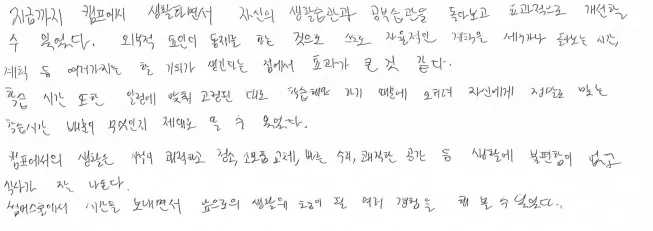 지금까지 캠프에서 생활하면서 자신의 생활습관과 공부습관을 돌아보고 효과적으로 개선할
수 있었다. 외부적 요인이 통제로 되는 것으로 스스로 자율적인 계획을 세우거나 돌아보는 시간,
계획 등 여러가지를 할 기회가 생긴다는 점에서 효과가 큰 것 같다.
학습 시간 또한 일정에 맞춰 고정된 대로 학습해 가기 때문에 오히려 자신에게 정말로 맞는
학습시간 배분이 무엇인지 제대로 알 수 있었다.
캠프에서의 생활은 쾌적하고 청소, 소모품 교체, 빠른 수리, 쾌적한 공간 등 생활에 불편함이 없고
식사가 잘 나온다.
썸머스쿨에서 시간을 보내면서 앞으로의 생활의 도움이 될 여러 경험을 해 볼 수 있었다.